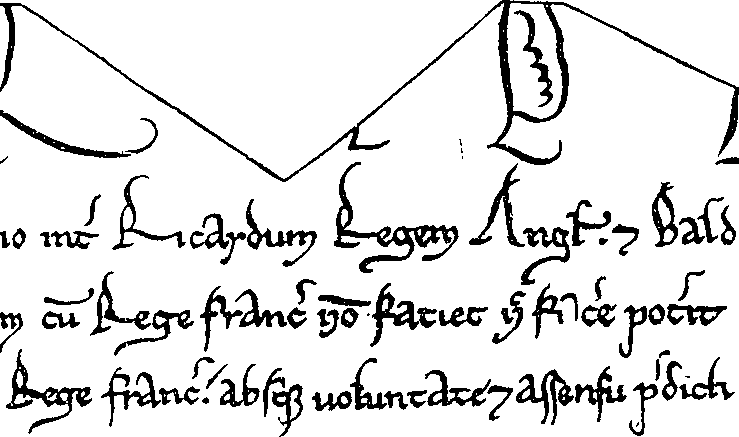 int̃ Ricardum Regem Angł. ⁊ Bald
cū Rege franc̃ nō faciet p̱ot̃it
Rege franc̃. absq̨ voluntate ⁊ assensu p̃dicti